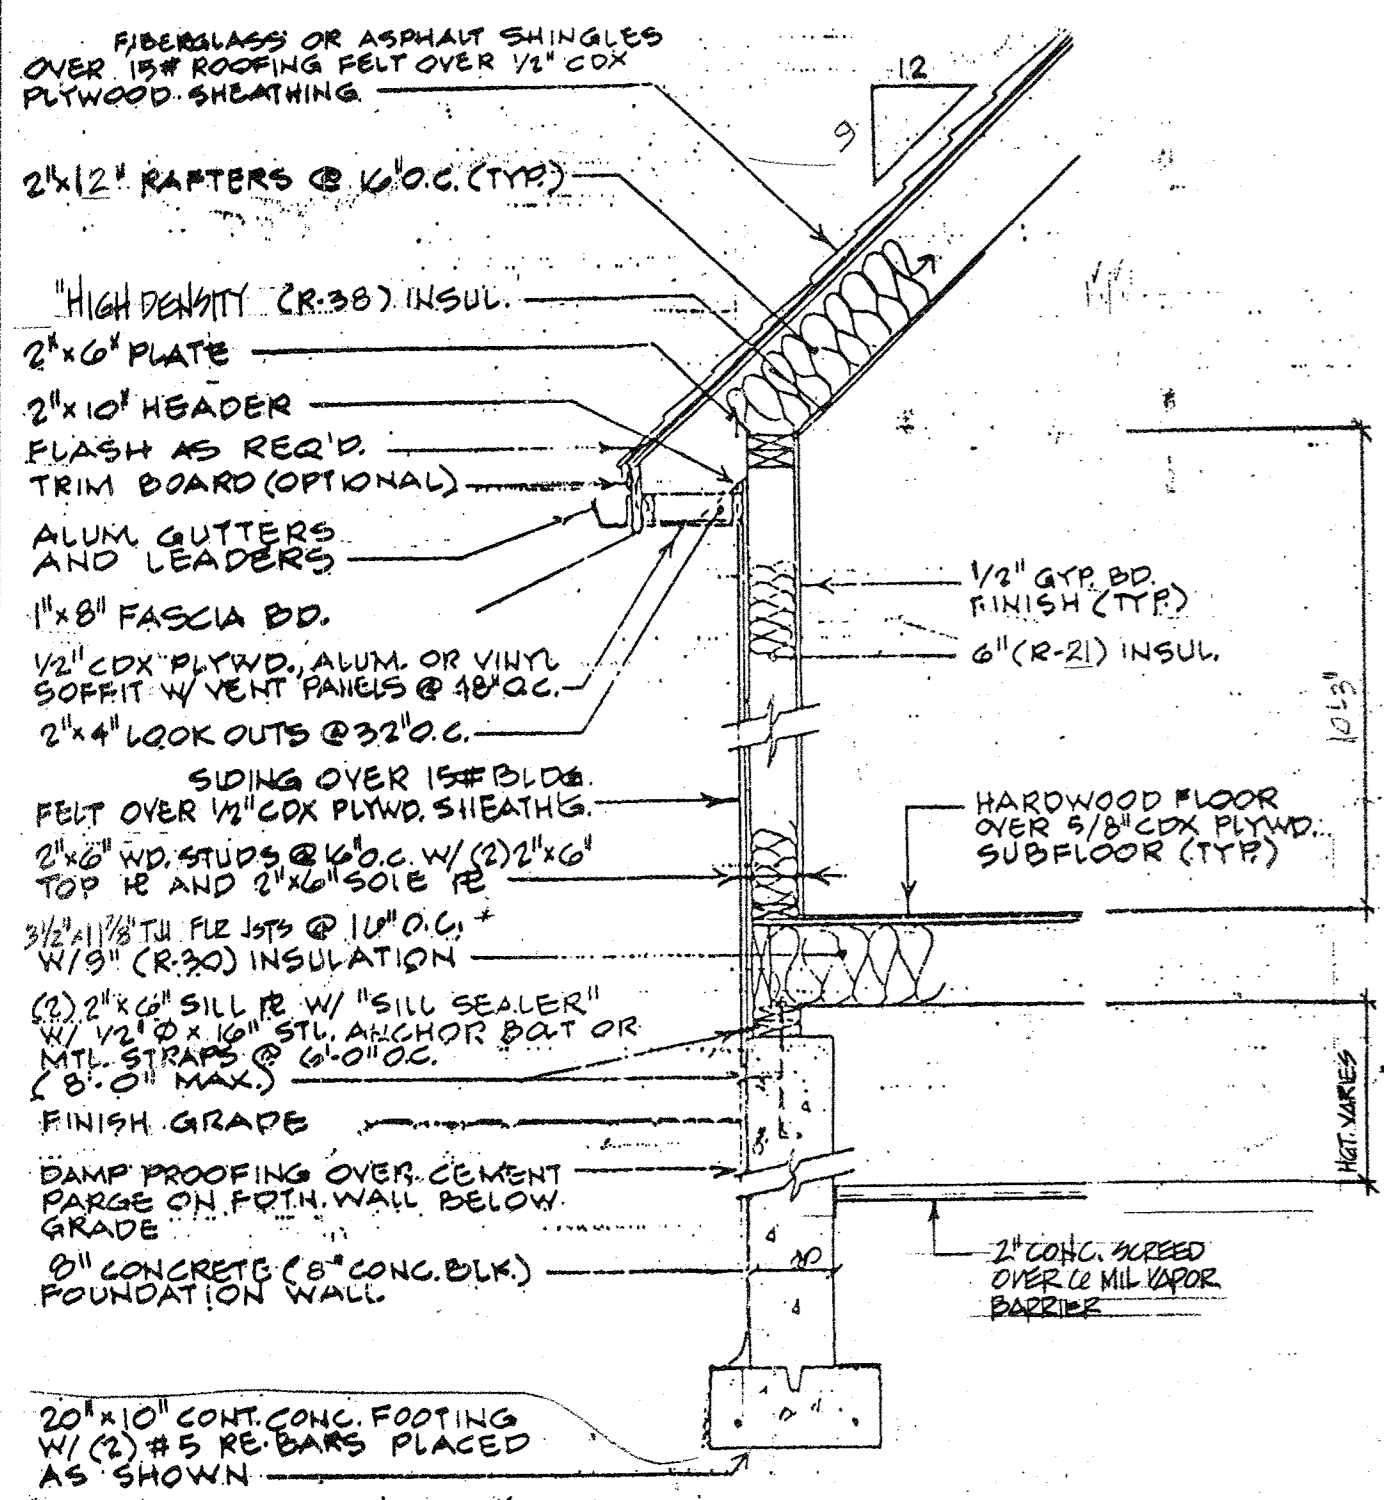 FIBERGLASS OR ASPHALT SHINGLES
OVER 15# ROOFING FELT OVER 1/2" CDX
PLYWOOD SHEATHING
12
9
2"x12" RAFTERS @ 16"O.C. (TYP.)
"HIGH DENSITY (R-38) INSUL.
2"x6" PLATE
2"x10" HEADER
FLASH AS REQ'D.
TRIM BOARD (OPTIONAL)
ALUM. GUTTERS
AND LEADERS
1"x8" FASCIA BD.
1/2" CDX PLYWD., ALUM. OR VINYL
SOFFIT W/ VENT PANELS @ 48"O.C.
2"x4" LOOK OUTS @ 32"O.C.
SIDING OVER 15# BLDG.
FELT OVER 1/2" CDX PLYWD. SHEATH'G.
2"x6" WD. STUDS @ 16"O.C. W/ (2) 2"x6"
TOP PL AND 2"x6" SOLE PL
3 1/2"x11 7/8" TJI FLR JSTS @ 16" O.C. *
W/9" (R-30) INSULATION
(2) 2"x6" SILL PL W/ "SILL SEALER"
W/ 1/2" Ø x 16" STL. ANCHOR BOLT OR
MTL. STRAPS @ 6'-0" O.C.
(8'-0" MAX.)
FINISH GRADE
DAMP PROOFING OVER CEMENT
PARGE ON FDTN. WALL BELOW
GRADE
8" CONCRETE (8" CONC. BLK.)
FOUNDATION WALL
20"x10" CONT. CONC. FOOTING
W/ (2) #5 RE-BARS PLACED
AS SHOWN
1/2" GYP. BD.
FINISH (TYP.)
6" (R-21) INSUL.
10'-3"
HARDWOOD FLOOR
OVER 5/8" CDX PLYWD.
SUBFLOOR (TYP.)
HGT. VARIES
2" CONC. SCREED
OVER 6 MIL VAPOR
BARRIER
8